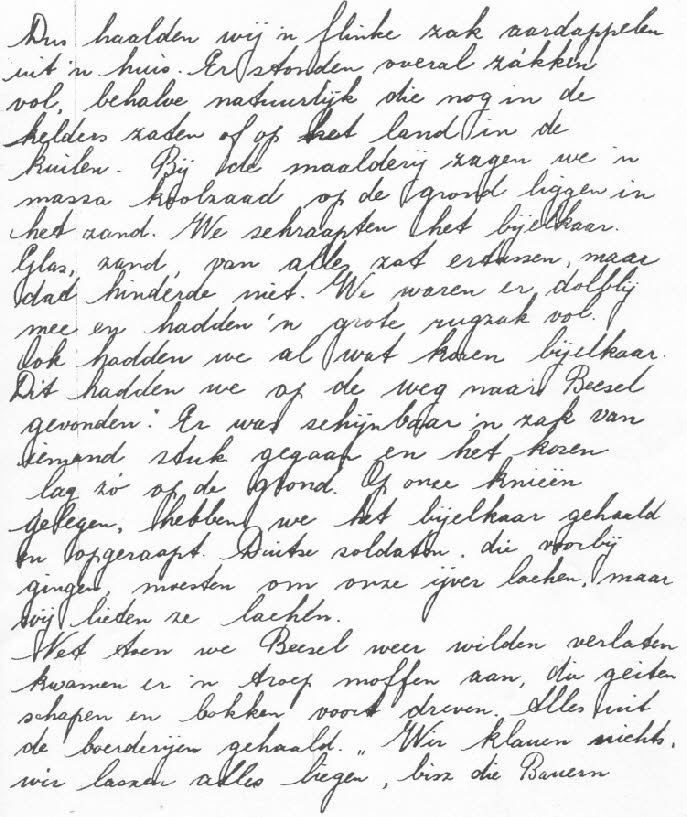 Dus haalden wij 'n flinke zak aardappelen
uit 'n huis. Er stonden overal zakken
vol, behalve natuurlijk die nog in de
kelders zaten of op het land in de
kuilen. Bij de maalderij zagen we 'n
massa koolzaad op de grond liggen in
het zand. We schraapten het bijelkaar.
Glas, zand, van alles zat ertussen, maar
dad hinderde niet. We waren er dolblij
mee en hadden 'n grote rugzak vol.
Ook hadden we al wat koren bijelkaar.
Dit hadden we op de weg naar Beesel
gevonden. Er was schijnbaar 'n zak van
iemand stuk gegaan en het koren
lag zó op de grond. Op onze knieën
gelegen, hebben we het bijelkaar gehaald
en opgeraapt. Duitse soldaten, die voorbij
gingen, moesten om onze ijver lachen, maar
wij lieten ze lachen.
Net toen we Beesel weer wilden verlaten
kwamen er 'n troep moffen aan, die geiten
schapen en bokken voort dreven. Alles uit
de boerderijen gehaald. „Wir klauen nichts,
wir laszen alles liegen, bisz die Bauern